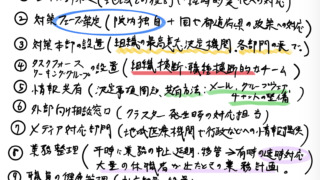 ② 対策フェーズ策定(院内独自)+国や都道府県の政策への対応)
③ 対策本部の設置(組織の最高意思決定機関、各部門の長で)
④ タスクフォース・ワーキンググループの設置(組織横断・職種横断的なチーム)
⑤ 情報共有(決定事項周知と共有方法:メール、グループウェア、チャットの整備)
⑥ 外部向け相談窓口(クラスター発生時の対応担当)
⑦ メディア対応部門(地域医療機関や行政などへの情報提供)
⑧ 業務整理(平時に業務の中止・延期・移管→有事の延時対応
大量の休職者が出たときの業務計画。